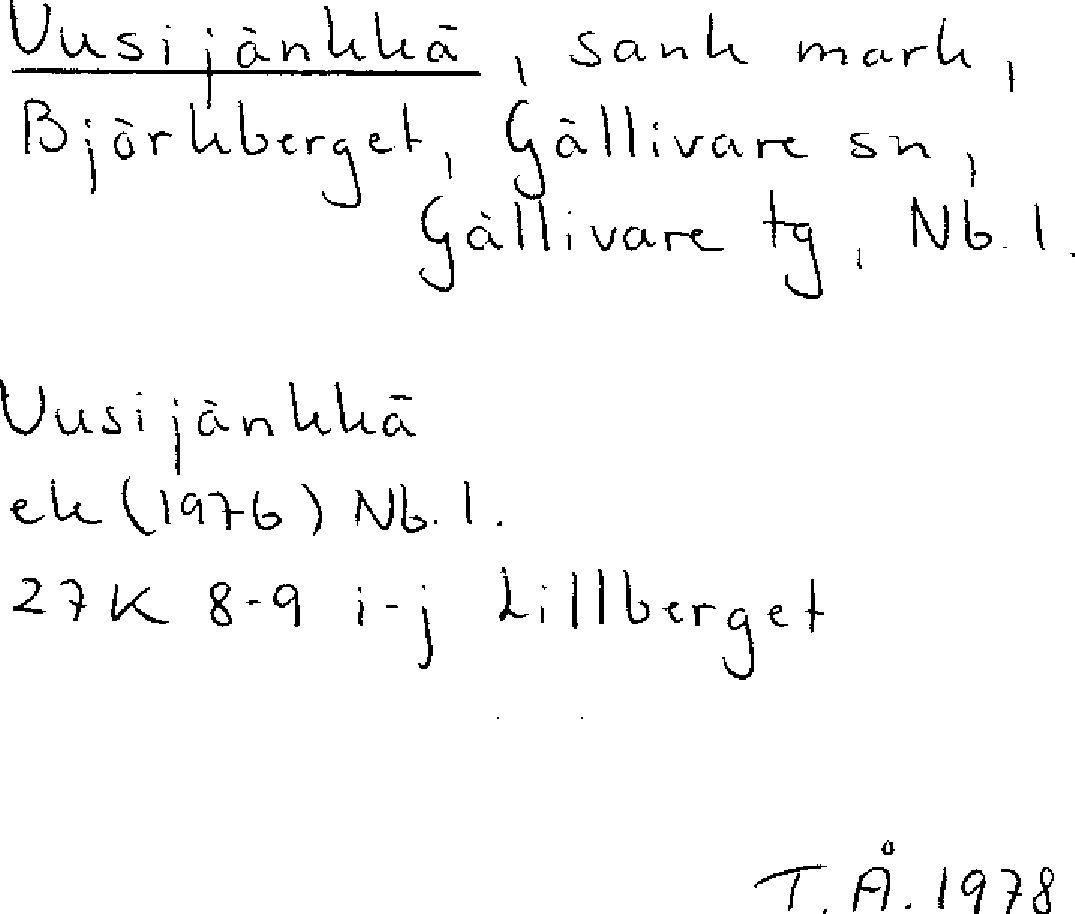 Uusijänkkä, sank mark,
Björkberget, Gällivare sn,
Gällivare tg, Nb. l.
Uusijänkkä
ek (1976) Nb. l.
27K 8-9 i-j Lillberget
T. Å. 1978